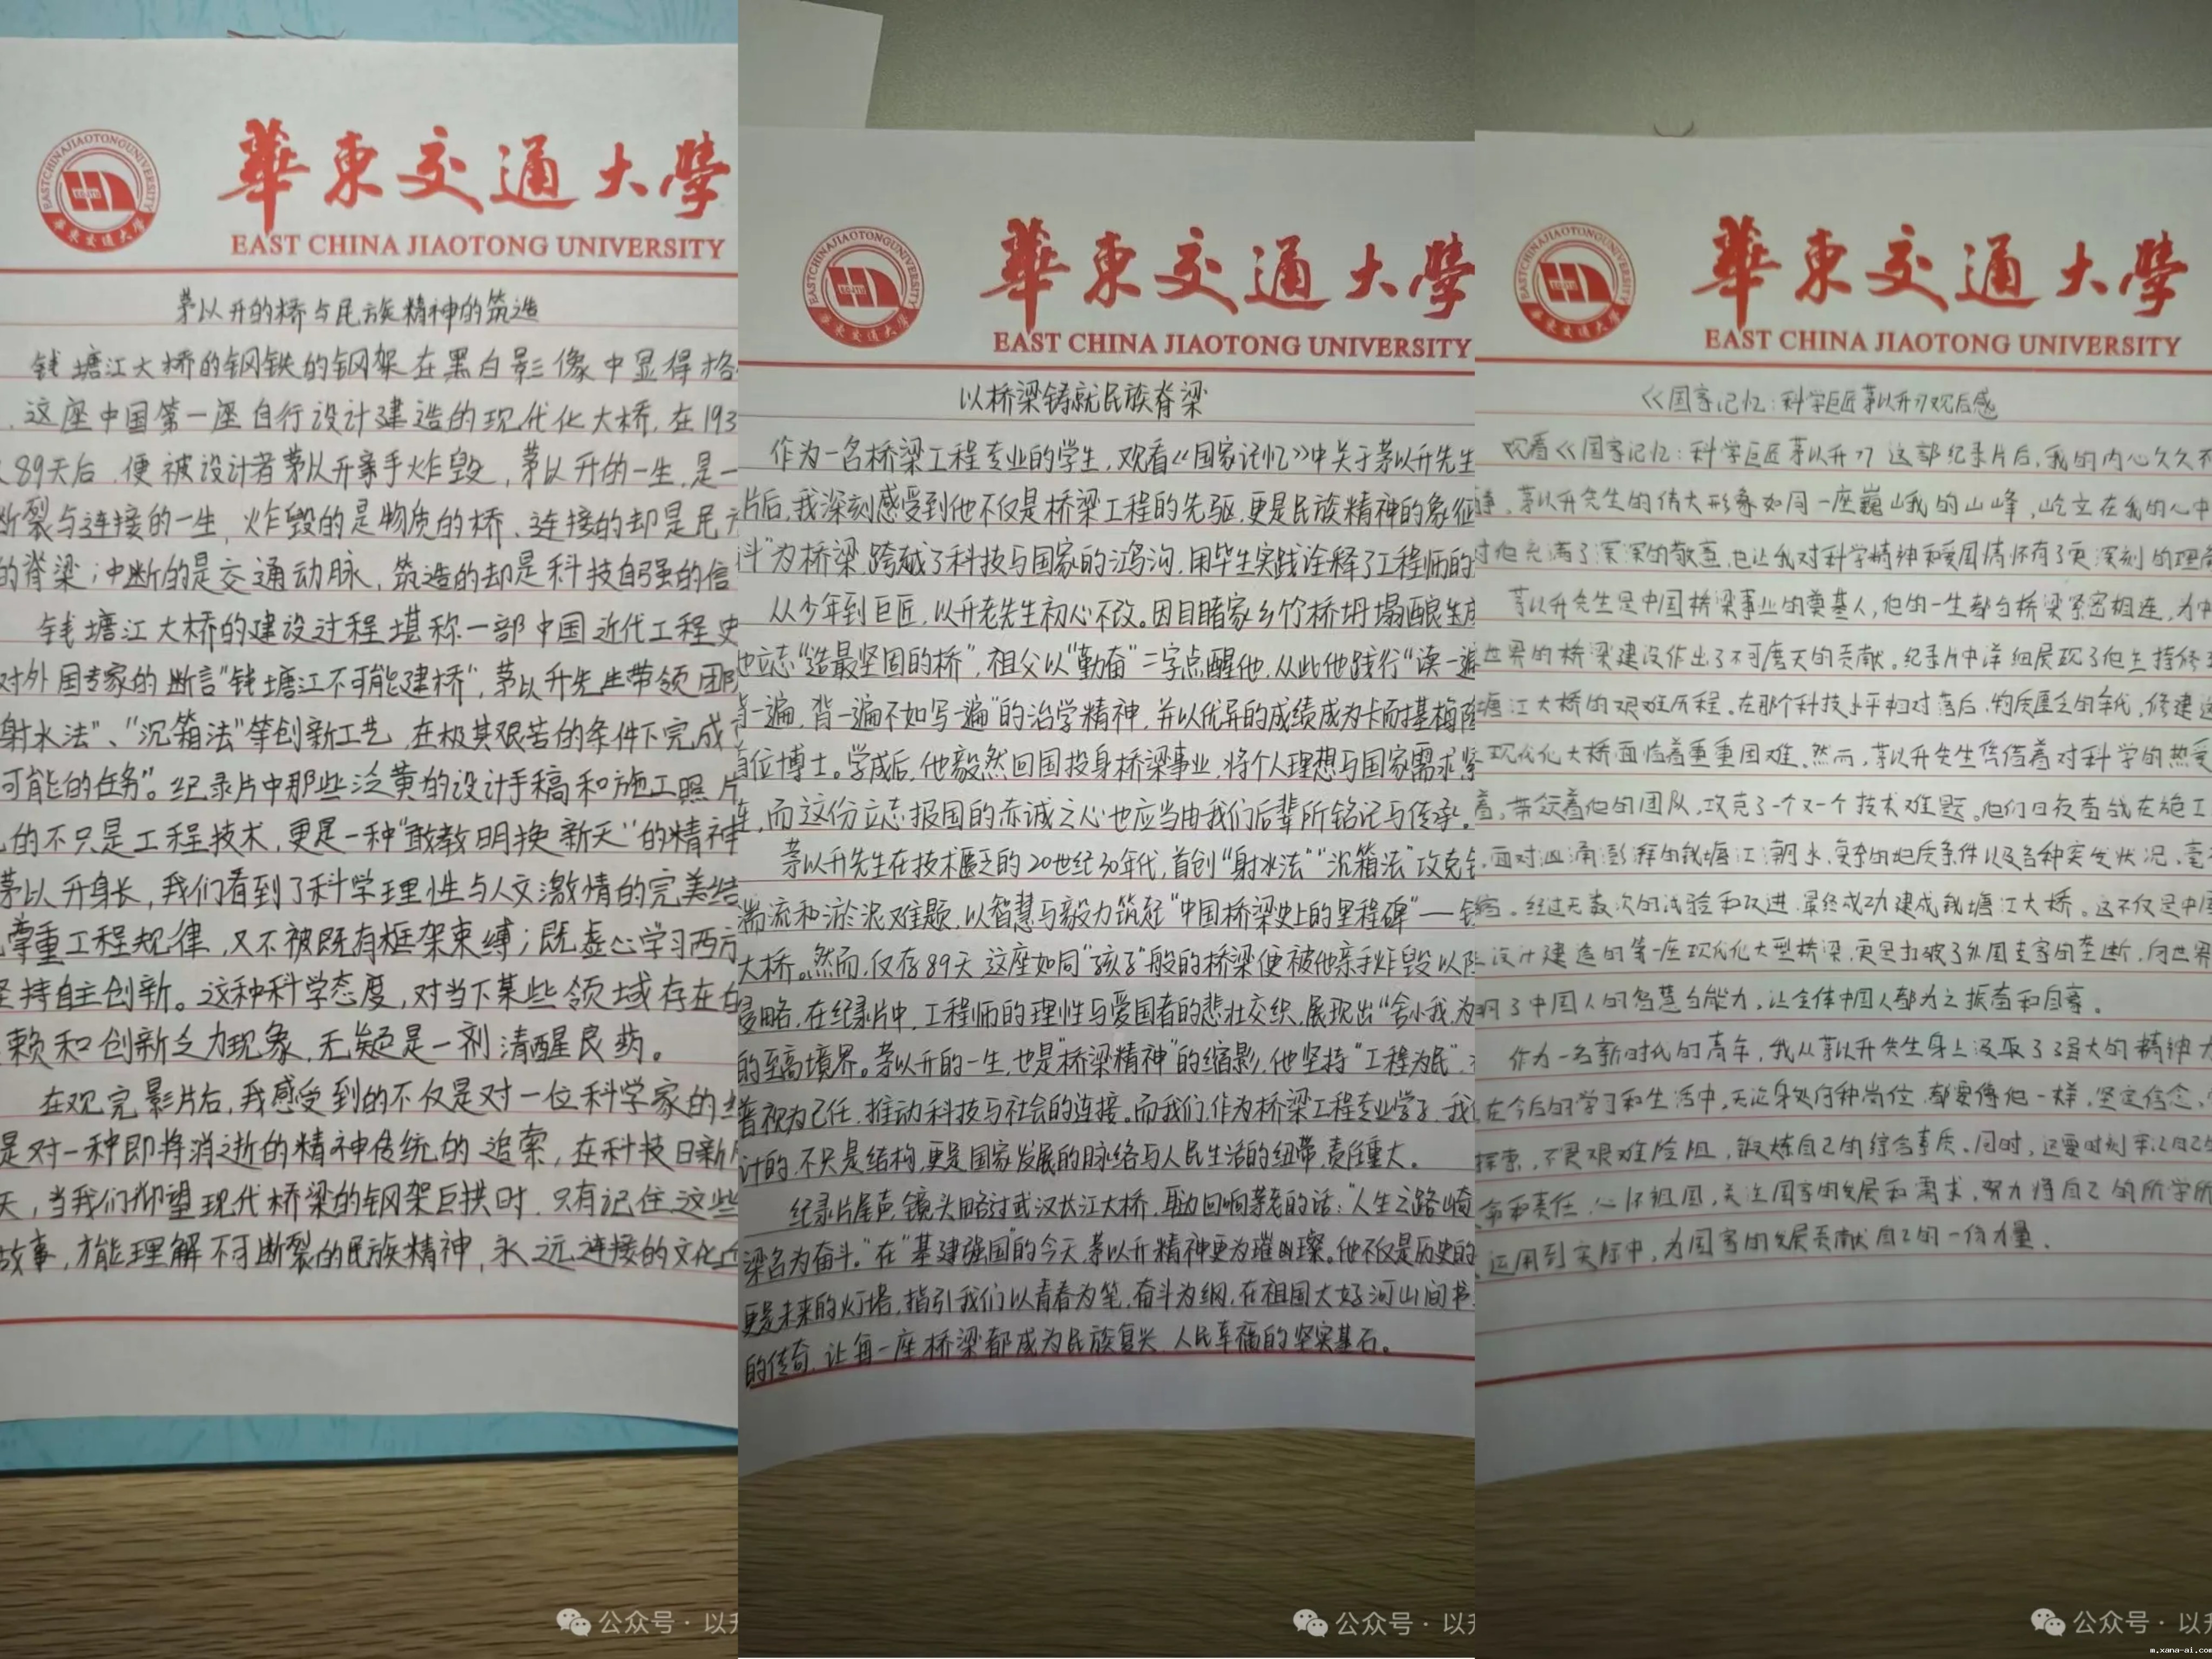 華東交通大學
EAST CHINA JIAOTONG UNIVERSITY
茅以升的桥与民族精神的筑造
钱塘江大桥的钢铁的钢架在黑白影像中显得格
，这座中国第一座自行设计建造的现代化大桥，在193
89天后，便被设计者茅以升亲手炸毁，茅以升的一生，是一
断裂与连接的一生，炸毁的是物质的桥、连接的却是民
的脊梁；中断的是交通动脉，筑造的却是科技自强的信
钱塘江大桥的建设过程堪称一部中国近代工程史
对外国专家的断言“钱塘江不可能建桥”，茅以升先生带领团队
射水法”、“沉箱法”等创新工艺，在极其艰苦的条件下完成
可能的任务”。纪录片中那些泛黄的设计手稿和施工照片
的不只是工程技术，更是一种“敢教明换新天”的精神
茅以升身长，我们看到了科学理性与人文激情的完美结
尊重工程规律，又不被既有框架束缚；既虚心学习西方
坚持自主创新。这种科学态度，对当下某些领域存在的
赖和创新乏力现象，无疑是一剂清醒良药。
在观完影片后，我感受到的不仅是对一位科学家的
是对一种即将消逝的精神传统的追索，在科技日新
天，当我们仰望现代桥梁的钢架巨拱时，只有记住这些
故事，才能理解不可断裂的民族精神，永远连接的文化
公众号·以升
華東交通大學
EAST CHINA JIAOTONG UNIVERSITY
以桥梁铸就民族脊梁
作为一名桥梁工程专业的学生，观看《国家记忆》中关于茅以升先生
片后，我深刻感受到他不仅是桥梁工程的先驱，更是民族精神的象征
斗”为桥梁，跨越了科技与国家的鸿沟，用毕生实践诠释了工程师的
从少年到巨匠，以升老先生初心不改。因目睹家乡竹桥坍塌酿生
他立志“造最坚固的桥”，祖父以“勤奋”二字点醒他，从此他践行“读一遍
背一遍，背一遍不如写一遍”的治学精神，并以优异的成绩成为卡而基梅隆
首位博士。学成后，他毅然回国投身桥梁事业，将个人理想与国家需求紧
连，而这份立志报国的赤诚之心也应当由我们后辈所铭记与传承。
茅以升先生在技术匮乏的20世纪30年代，首创“射水法”“沉箱法”攻克
湍流和淤泥难题，以智慧与毅力筑起“中国桥梁史上的里程碑”——钱
大桥。然而，仅存89天，这座如同“孩子”般的桥梁便被他亲手炸毁以阻
侵略，在纪录片中，工程师的理性与爱国者的悲壮交织，展现出“舍小我，为
的至高境界。茅以升的一生，也是“桥梁精神”的缩影，他坚持“工程为民”，
普视为己任，推动科技与社会的连接。而我们，作为桥梁工程专业学子，我们
计的，不只是结构，更是国家发展的脉络与人民生活的纽带，责任重大。
纪录片尾声，镜头略过武汉长江大桥，耳边回响茅老的话：“人生之路崎
梁名为奋斗。”在“基建强国”的今天，茅以升精神更为璀璨。他不仅是历史的
更是未来的灯塔，指引我们以青春为笔，奋斗为纲，在祖国大好河山间书
的传奇，让每一座桥梁都成为民族复兴、人民幸福的坚实基石。
公众号·以升
華東交通大學
EAST CHINA JIAOTONG UNIVERSITY
《国家记忆：科学巨匠茅以升》观后感
观看《国家记忆：科学巨匠茅以升》这部纪录片后，我的内心久久不
静，茅以升先生的伟大形象如同一座巍峨的山峰，屹立在我的心中
对他充满了深深的敬意，也让我对科学精神和爱国情怀有了更深刻的理解
茅以升先生是中国桥梁事业的奠基人，他的一生都与桥梁紧密相连，为中
世界的桥梁建设作出了不可磨灭的贡献。纪录片中详细展现了他主持修建
塘江大桥的艰难历程，在那个科技水平相对落后，物质匮乏的年代，修建这
现代化大桥面临着重重困难。然而，茅以升先生凭借着对科学的热爱
着，带领着他的团队，攻克了一个又一个技术难题。他们日夜奋战在施工
，面对汹涌澎湃的钱塘江潮水，复杂的地质条件以及各种突发状况，毫
缩。经过无数次的试验和改进，最终成功建成钱塘江大桥。这不仅是中国
设计建造的第一座现代化大型桥梁，更是打破了外国专家的垄断，向世界
明了中国人的智慧与能力，让全体中国人都为之振奋和自豪。
作为一名新时代的青年，我从茅以升先生身上汲取了强大的精神力
在今后的学习和生活中，无论身处何种岗位，都要像他一样，坚定信念、
探索，不畏艰难险阻，锻炼自己的综合素质。同时，还要时刻牢记自己
命和责任，心怀祖国，关注国家的发展和需求，努力将自己的所学所
运用到实际中，为国家的发展贡献自己的一份力量。
公众号·以升
m.xana-ai.com